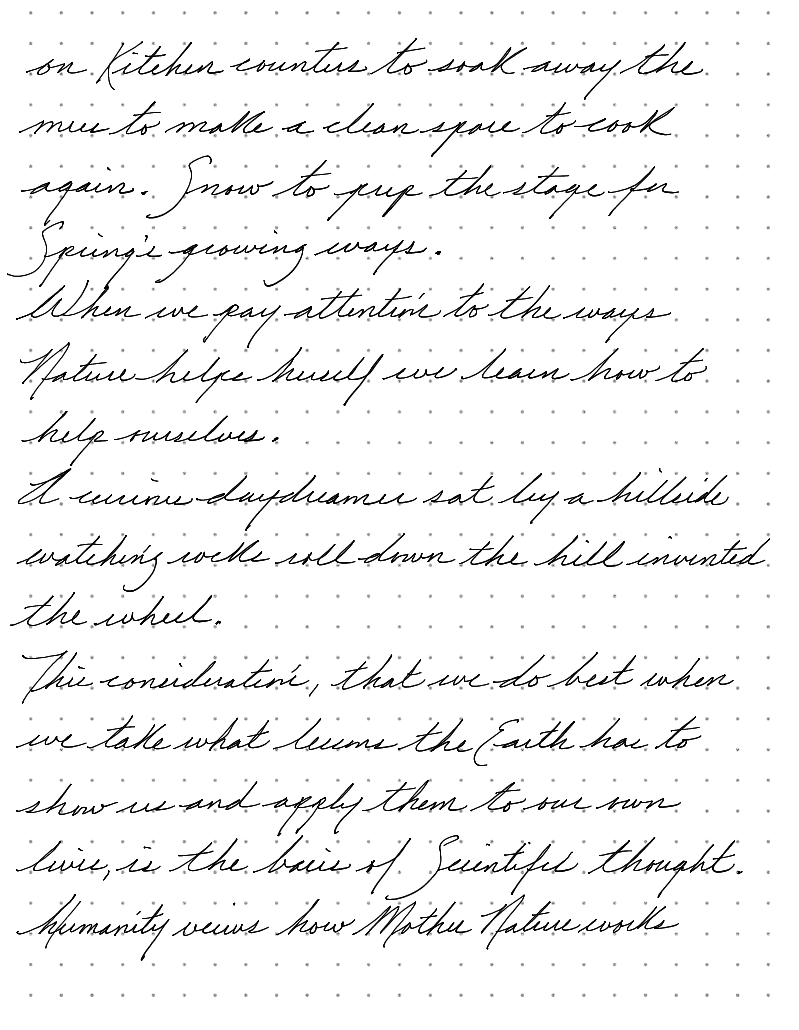 on Kitchen counters to soak away the
mess to make a clean space to cook
again. Snow to prep the stage for
Spring's growing ways.
When we pay attention to the ways
Nature helps herself we learn how to
help ourselves.
A curious daydreamer sat by a hillside
watching rocks roll down the hill invented
the wheel.
This consideration, that we do best when
we take what lessons the Earth has to
show us and apply them to our own
lives, is the basis of Scientific thought.
Humanity veiws how Mother Nature works